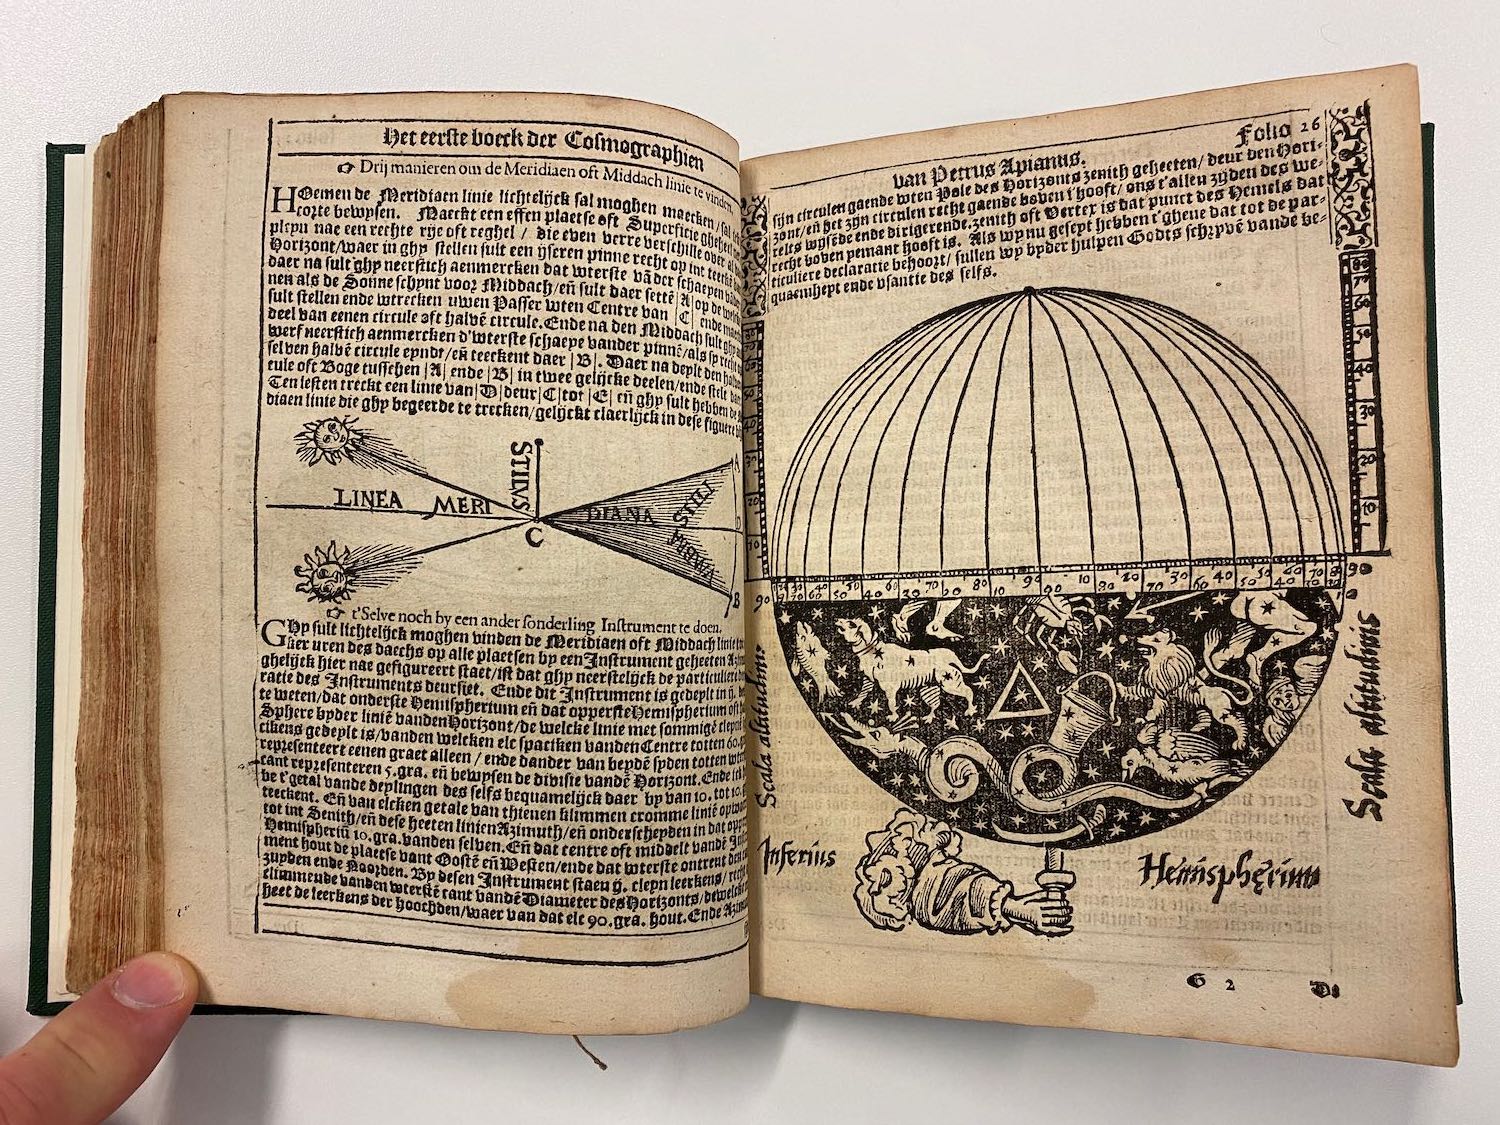 Het eerste boeck der Cosmographien
☞ Drij manieren om de Meridiaen oft Middach linie te vinden.
HOemen de Meridiaen linie lichtelijck sal moghen maecken / sal
corte bewysen. Maeckt een effen plaetse oft Superficie
nae een rechte rije oft reghel / die even verre verschille over al
Horizont / waer in ghy stellen sult een yseren pinne recht op int
daer na sult ghy neerstich aenmercken dat wterste vā der schaepen
nen als de Sonne schynt voor Middach / eñ sult daer settē |A| op de
sult stellen ende wtrecken uwen Passer wten Centre van |C| ende
deel van eenen circule oft halvē circule. Ende na den Middach sult ghy
werf neerstich aenmercken d'wterste schaepe vander pinnē / als sy
selven halvē circule eyndt / eñ teeckent daer |B|. Daer na deylt den
cule oft Boge tusschen |A| ende |B| in twee gelijcke deelen / ende stelt
Ten lesten treckt een linie van |D| deur |C| tot |E| eñ ghy sult hebben de
diaen linie die ghy begeerde te trecken / gelijckt claerlijck in dese figuere
LINEA MERI DIANA
STILVS
C
A
STILI
D
B
☞ t'Selve noch by een ander sonderling Instrument te doen.
GHy sult lichtelijck moghen vinden de Meridiaen oft Middach linie
uren des daechs op alle plaetsen by een Instrument geheeten
ghelijck hier nae gefigureert staet / ist dat ghy neerstelijck de particuliere
ratie des Instruments deursiet. Ende dit Instrument is gedeylt in
te weten / dat onderste Hemispherium eñ dat opperste Hemispherium
Sphere byder liniē vanden Horizont / de welcke linie met sommige
ckens gedeylt is / vanden welcken elc spacien vanden Centre totten 60.
representeert eenen graet alleen / ende dander van beydē syden totten
cant representeren 5. gra. eñ bewysen de divisie vandē Horizont. Ende
be t'getal vande deylingen des selfs bequamelijck daer by van 10. tot 10.
teeckent. Eñ van elcken getale van thienen klimmen cromme liniē
tot int Senith / eñ dese heeten linien Azimuth / eñ onderscheyden in dat
Hemispheriū 10. gra. vanden selven. Eñ dat centre oft middelt vandē
ment hout de plaetse vant Oostē eñ Westen / ende dat wterste ontrent den
zuyden ende Noorden. By desen Instrument staen ij. cleyn leerkens /
climmende vanden wterstē cant vandē Diameter des Horizonts / dewelcke
heet de leerkens der hoochden / waer van dat elc 90. gra. hout. Ende
van Petrus Apianus.
Folio 26
sijn circulen gaende wten Pole des Horizonts zenith geheeten / deur den Hori-
zont / eñ het zijn circulen recht gaende boven t'hooft / ons t'allen zyden des we-
relts wysēde ende dirigerende. zenith oft Vertex is dat punct des Hemels dat
recht boven yemant hooft is. Als wy nu geseyt hebben t'ghene dat tot de par-
ticuliere declaratie behoort / sullen wy byder hulpen Godts schryvē vande be-
quaemheyt ende usantie des selfs.
70
60
50
40
30
20
10
90 80 70 60 50 40 30 20 10
Scala altitudinis
Scala altitudinis
Inferius
Hemispherium
G 2